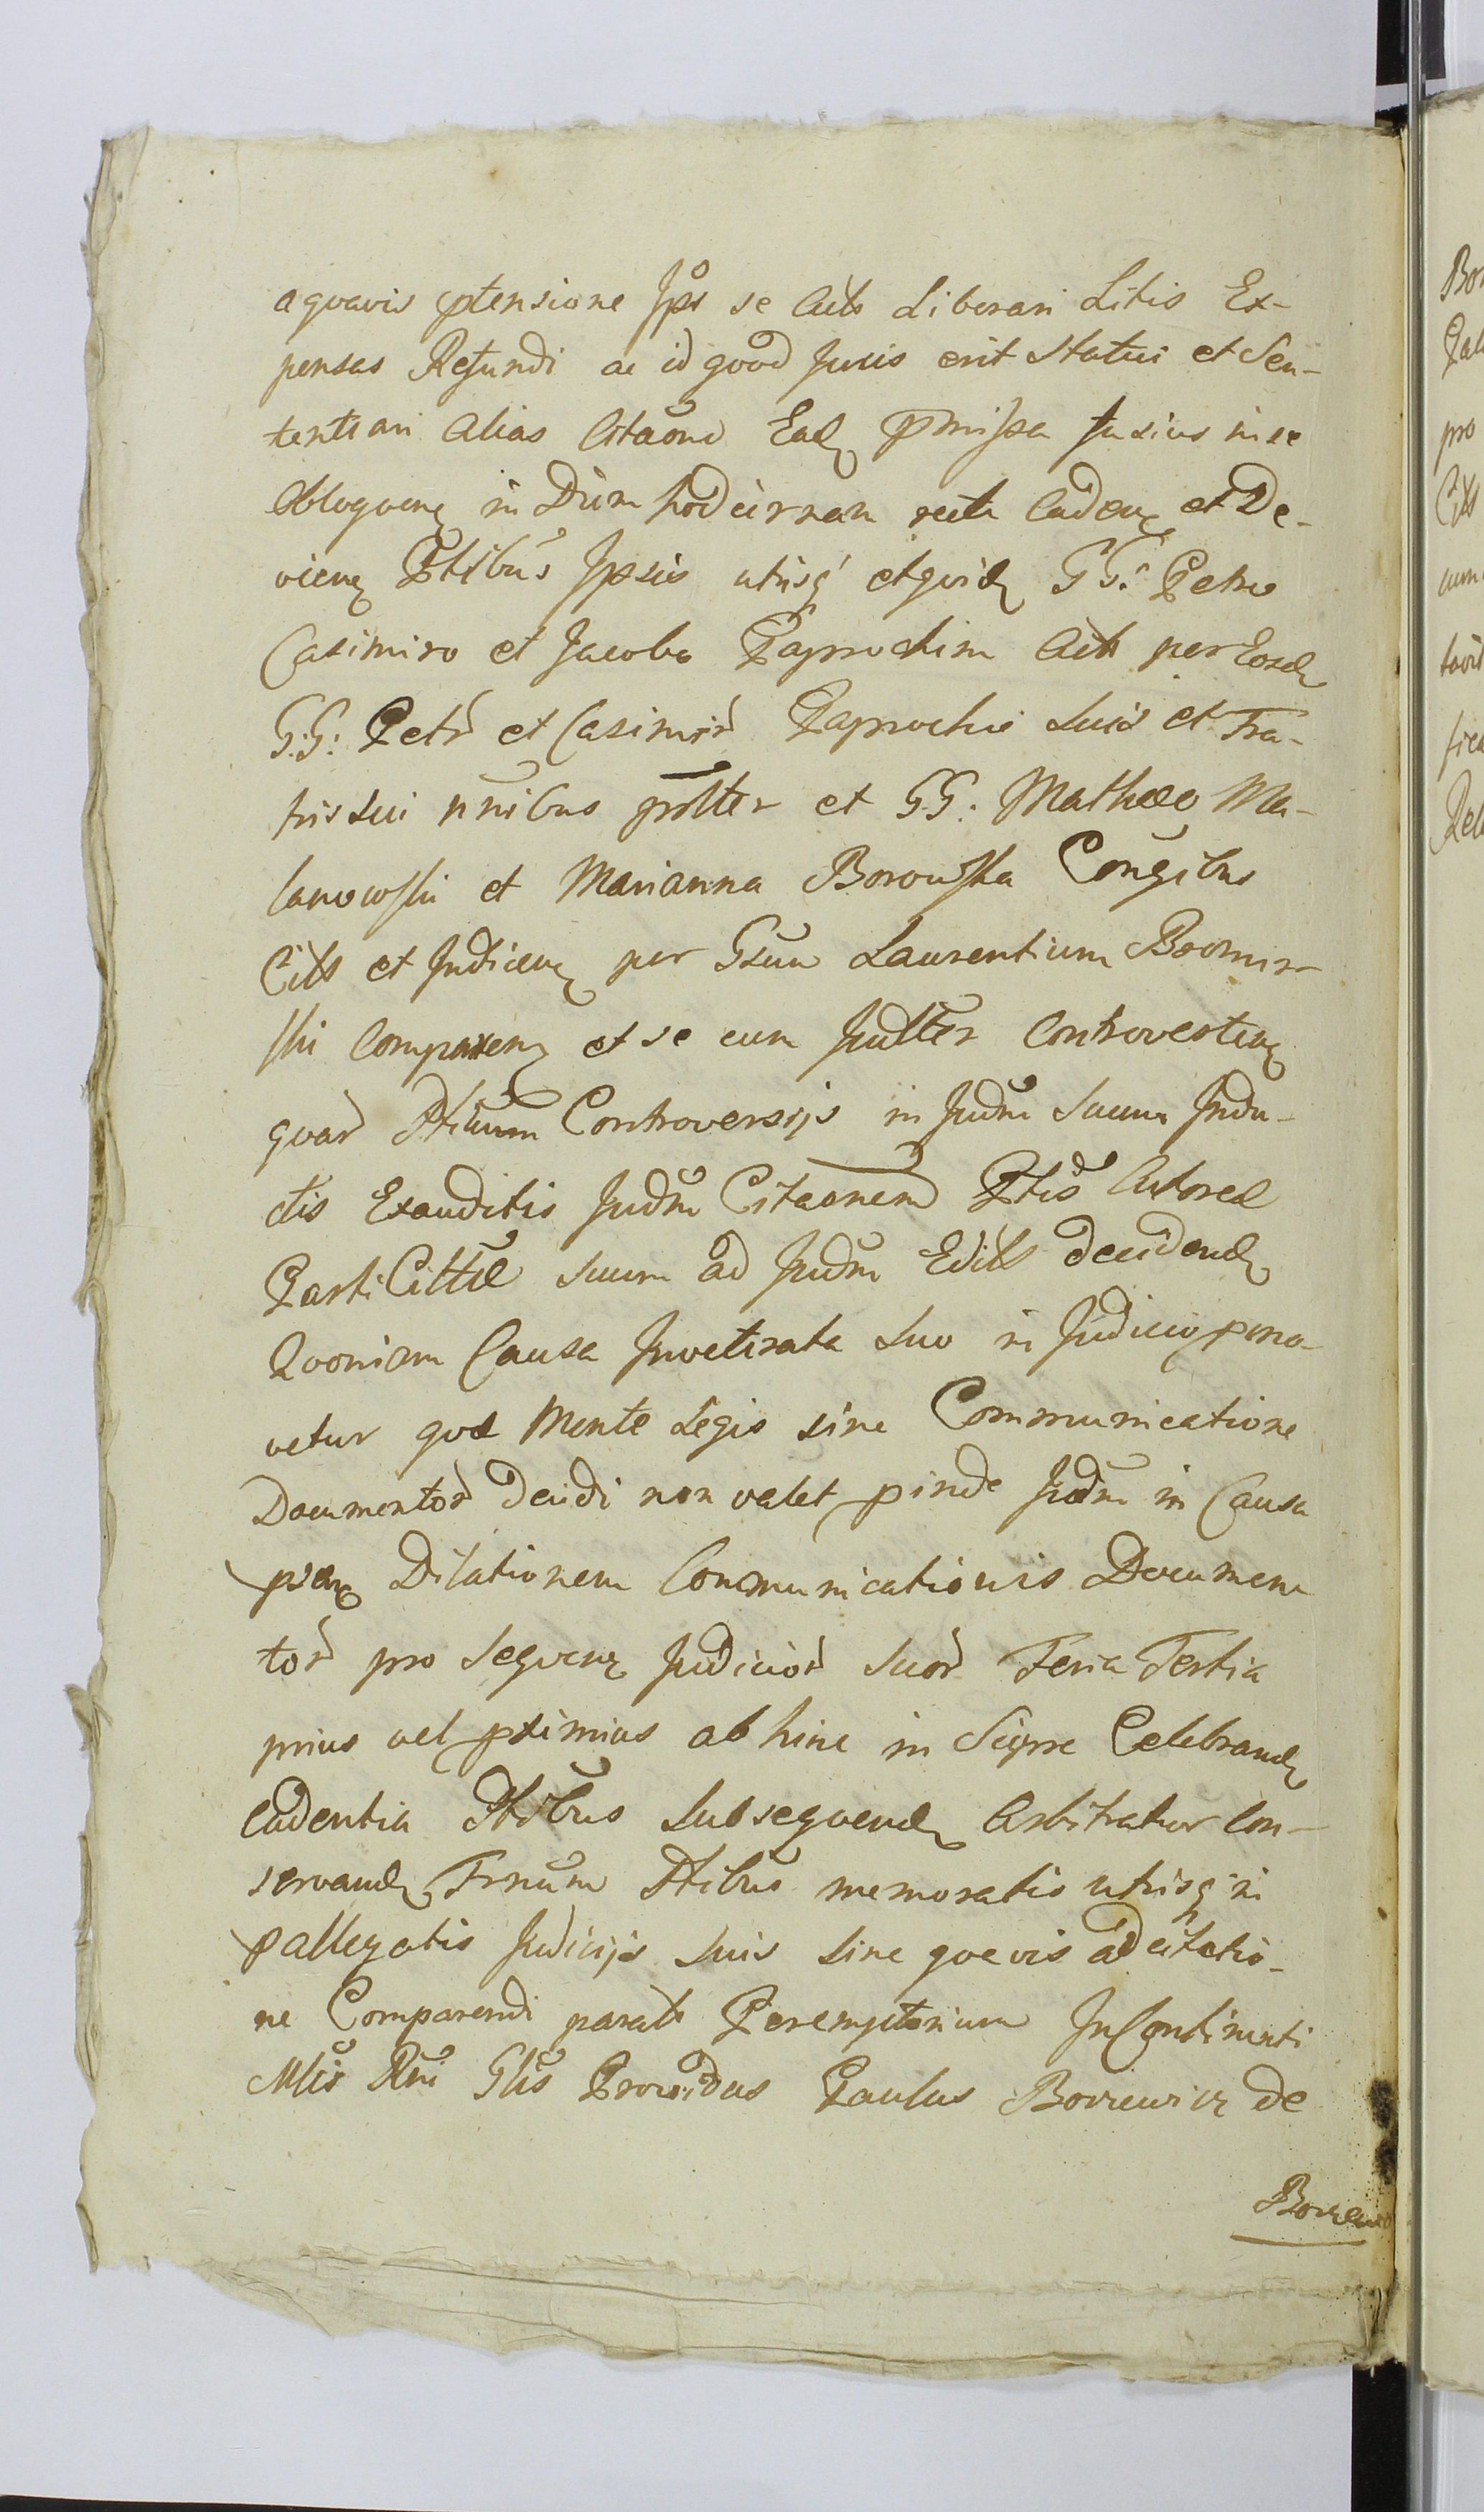 aquavis ptensione Ips se Acts Liberari Litis Ex-
pensas Refundi ac id quod Juris erit Statui et Sen-
tentiari Alias Citaone Ead pmissa fusius in se
obloquen in Diem hodiernam recte Caden et De-
vien Ptibus Ipsis utrisq et quid GG: Petro
Casimiro et Jacobo Paprockim Acts per Eosd
G:G: Petr et Casimir Paprockie Suis et Fra-
tris sui nnibus psltter et GG: Mathaeo Ma-
lanowski et Marianna Borowska Congibus
Cits et Judicia per Gsum Laurentium Bromir-
ski Comparen et se cum Jultter Controverten
quar Ptium Controversijs in Judm Suum Indu-
ctis Exauditis Judm Citaonem Ptis Actorea
Parti Cittae suum ad Judm Edits decidend
Quoniam Causa Inveterata Suo in Judicio pmo-
vetur quae Mente Legis sine Communicatione
Documentor Decidi non valet pinde Judm in Causa
psen Dilationem Communicationis Documen
tor pro Sequen Judicior Suor Feria Tertia
prius vel pximius ab hinc in Sierpc Celebrand
Cadentia Ptibus Subsequend Arbitratur Con-
servand Trnum Ptibus memoratis utrisq in
pallegatis Judicijs Suis Sine quavis adcitatio-
ne Comparendi parats Peremptorium In Continenti
Mlis Rni Glis Providus Paulus Borzewicz de